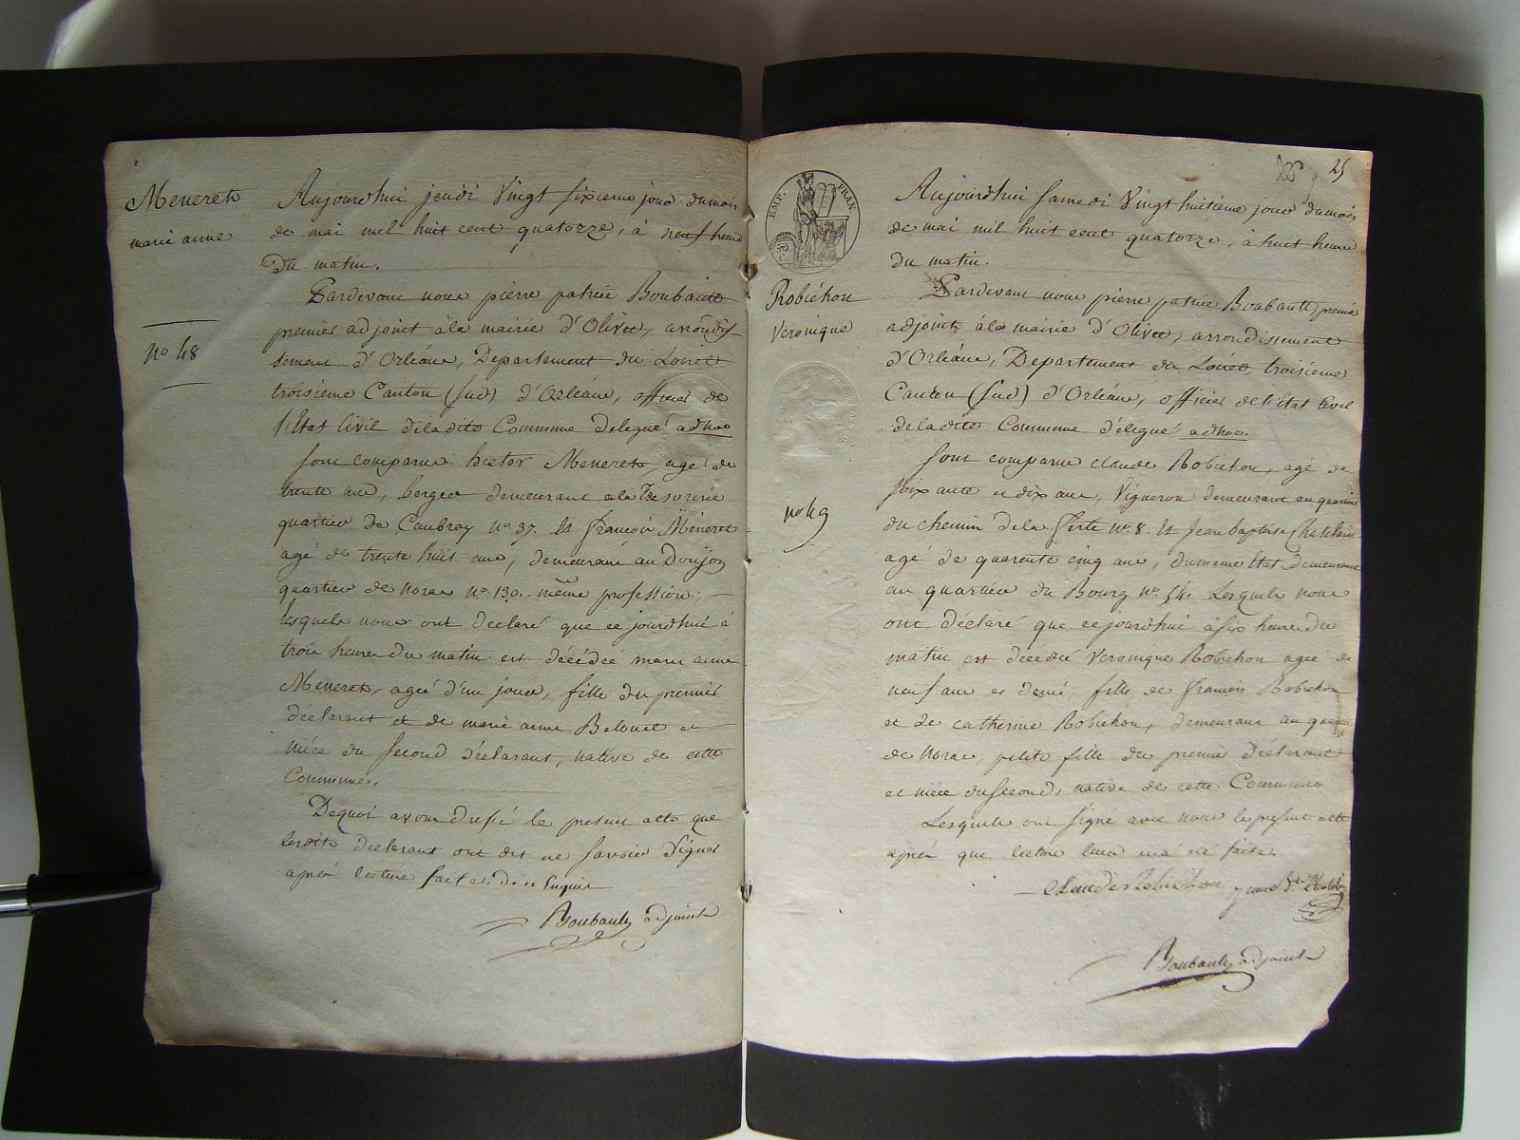 Menerets
marie anne
no 48
Aujourdhui jeudi Vingt sixieme jour du mois
de mai mil huit cent quatorze, à neuf heure
Du matin.
Pardevant nous pierre patrice Boubault
premier adjoint à la mairie d'Olivet, arrondis-
sement d'Orléans, Departement du Loiret
troisieme Canton (sud) d'Orléans, officier de
l'Etat Civil de ladite Commune delegué adhoc
sont comparus hector Menerets, agé de
trente ans, berger demeurant a la Tresorerie
quartier de Caubray no. 37. Et francois Menerets
agé de trente huit ans, demeurant au Donjon
quartier de Norac no. 130. même profession.
lesquels nous ont declaré que cejourdhui à
trois heures du matin est décédée marie anne
Menerets, ageé d'un jour, fille du premier
déclarant et de marie anne Belouet et
niéce du second déclarant, native de cette
Commune.
Dequoi avons dressé le present acte que
lesdits declarants ont dit ne savoir signer
après lecture faite de ce enquis
Boubault adjoint
25
EMP. FRAN
Robichon
Veronique
no 49
Aujourdhui samedi Vingt huitieme jour du mois
de mai mil huit cent quatorze, à huit heures
du matin.
Pardevant nous pierre patrice Boubault premier
adjoint à la mairie d'Olivet, arrondissement
d'Orléans, Departement du Loiret, troisiéme
Canton (sud) d'Orléans, officier de l'état Civil
de ladite Commune délegué adhoc.
sont comparus claude Robichon, agé de
soixante et dix ans, Vigneron demeurant au quartier
du chemin de la ferté no. 8. Et Jean baptiste Chatelain
agé de quarente cinq ans, du meme Etat demeurant
au quartier du Bourg no. 54. Lesquels nous
ont déclaré que cejourdhui à six heures du
matin est decedeé Veronique Robichon ageé de
neuf ans et demi fille de francois Robichon
et de catherine Robichon, demeurant au quartier
de Norac, petite fille du premier déclarant
et niéce du second, native de cette Commune
Lesquels ont signé avec nous le present acte
après que lecture leur en a été faite.
Claude Robichon
Boubault adjoint